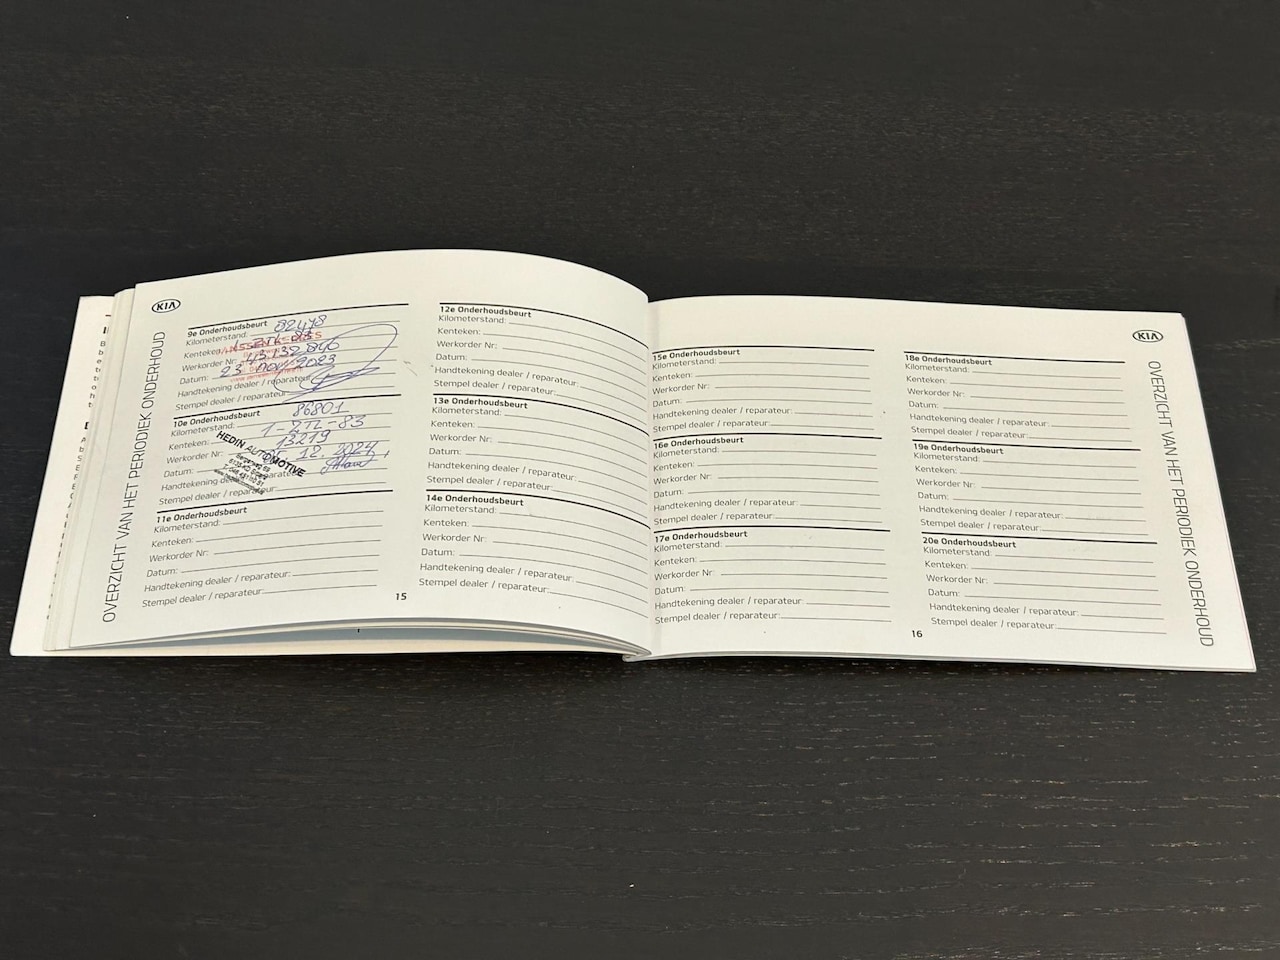 KIA
OVERZICHT VAN HET PERIODIEK ONDERHOUD
9e Onderhoudsbeurt
Kilometerstand: 82478
Kenteken:
Werkorder Nr:
Datum: 23 nov 2023
Handtekening dealer / reparateur:
Stempel dealer / reparateur:
10e Onderhoudsbeurt
Kilometerstand: 86801
Kenteken: 1-ZTL-83
Werkorder Nr: 13219
Datum: 12.2024
Handtekening dealer / reparateur:
Stempel dealer / reparateur:
HEDIN AUTOMOTIVE
11e Onderhoudsbeurt
Kilometerstand:
Kenteken:
Werkorder Nr:
Datum:
Handtekening dealer / reparateur:
Stempel dealer / reparateur:
12e Onderhoudsbeurt
Kilometerstand:
Kenteken:
Werkorder Nr:
Datum:
Handtekening dealer / reparateur:
Stempel dealer / reparateur:
13e Onderhoudsbeurt
Kilometerstand:
Kenteken:
Werkorder Nr:
Datum:
Handtekening dealer / reparateur:
Stempel dealer / reparateur:
14e Onderhoudsbeurt
Kilometerstand:
Kenteken:
Werkorder Nr:
Datum:
Handtekening dealer / reparateur:
Stempel dealer / reparateur:
15
KIA
OVERZICHT VAN HET PERIODIEK ONDERHOUD
15e Onderhoudsbeurt
Kilometerstand:
Kenteken:
Werkorder Nr:
Datum:
Handtekening dealer / reparateur:
Stempel dealer / reparateur:
16e Onderhoudsbeurt
Kilometerstand:
Kenteken:
Werkorder Nr:
Datum:
Handtekening dealer / reparateur:
Stempel dealer / reparateur:
17e Onderhoudsbeurt
Kilometerstand:
Kenteken:
Werkorder Nr:
Datum:
Handtekening dealer / reparateur:
Stempel dealer / reparateur:
18e Onderhoudsbeurt
Kilometerstand:
Kenteken:
Werkorder Nr:
Datum:
Handtekening dealer / reparateur:
Stempel dealer / reparateur:
19e Onderhoudsbeurt
Kilometerstand:
Kenteken:
Werkorder Nr:
Datum:
Handtekening dealer / reparateur:
Stempel dealer / reparateur:
20e Onderhoudsbeurt
Kilometerstand:
Kenteken:
Werkorder Nr:
Datum:
Handtekening dealer / reparateur:
Stempel dealer / reparateur:
16